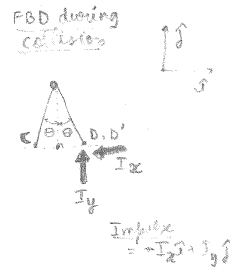 FBD during
collision
ĵ
î
θ θ
C
D, D'
h
I_x
I_y
Impulse
= -I_x î + I_y ĵ